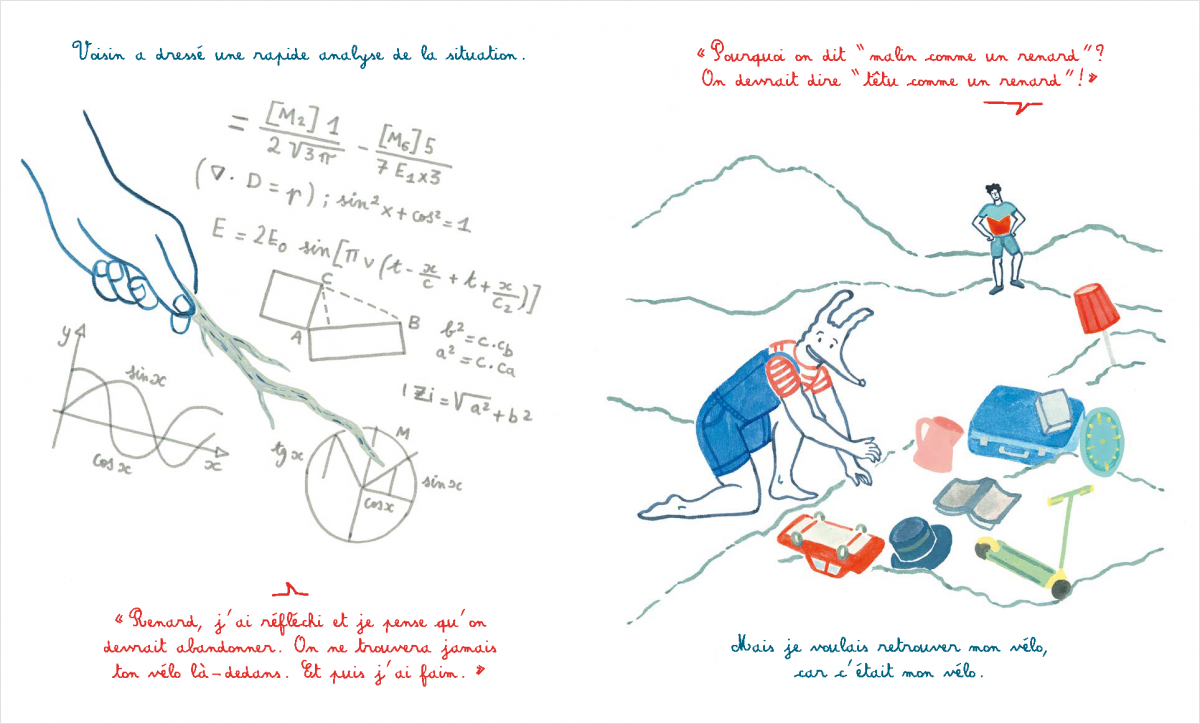 Voisin a dressé une rapide analyse de la situation.
= [M2] 1 / 2 √3π - [M6] 5 / 7 E1x3
(∇ · D = р) ; sin²x + cos² = 1
E = 2E0 sin[π ν (t - x/c + t + x/c2)]
C
B
A
b² = c.cb
a² = c.ca
| Zi = √a² + b2
y
sin x
cos x
x
tg x
M
sin x
cos x
« Renard, j'ai réfléchi et je pense qu'on
devrait abandonner. On ne trouvera jamais
ton vélo là-dedans. Et puis j'ai faim. »
« Pourquoi on dit "malin comme un renard"?
On devrait dire "têtu comme un renard"! »
Mais je voulais retrouver mon vélo,
car c'était mon vélo.